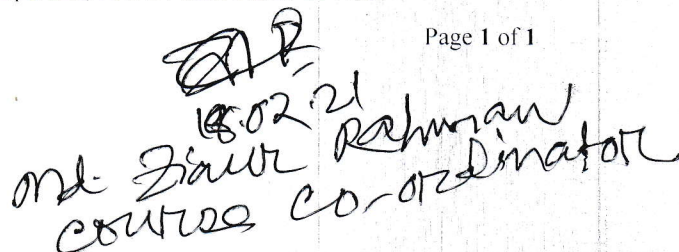 Page 1 of 1
18.02.21
Md. Ziaur Rahman
Course Co-ordinator